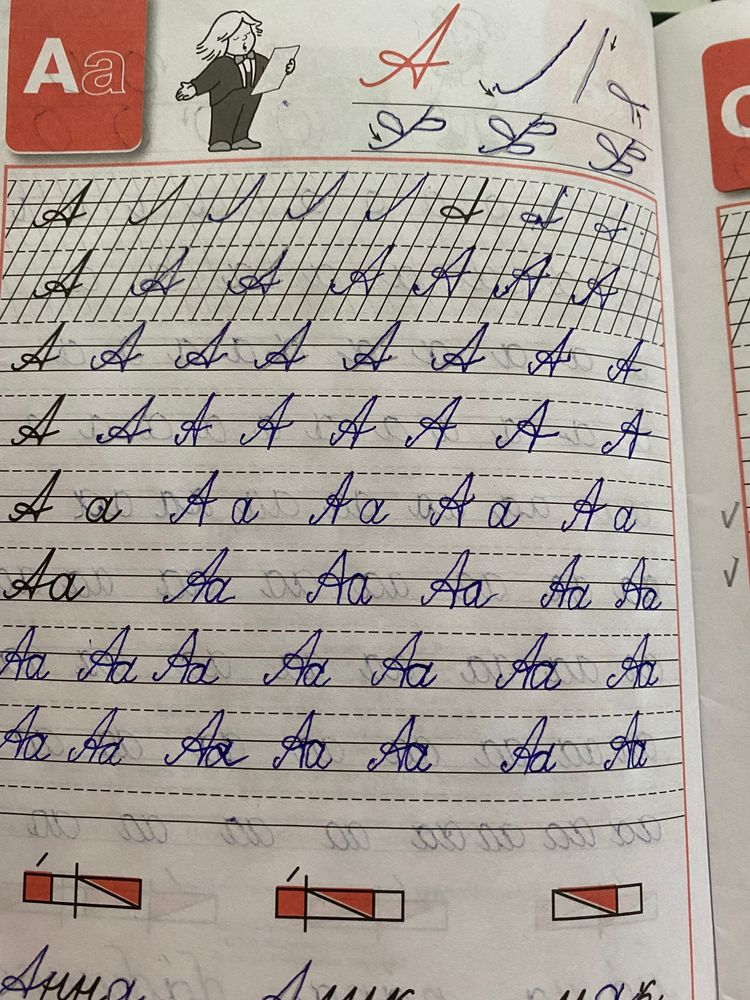 Аа
А
А
А А А А А А А
А А А А А А А А
А А А А А А А А
А а А а А а А а А а
Аа Аа Аа Аа Аа Аа
Аа Аа Аа Аа Аа Аа Аа
Аа Аа Аа Аа Аа Аа Аа
Анна мак